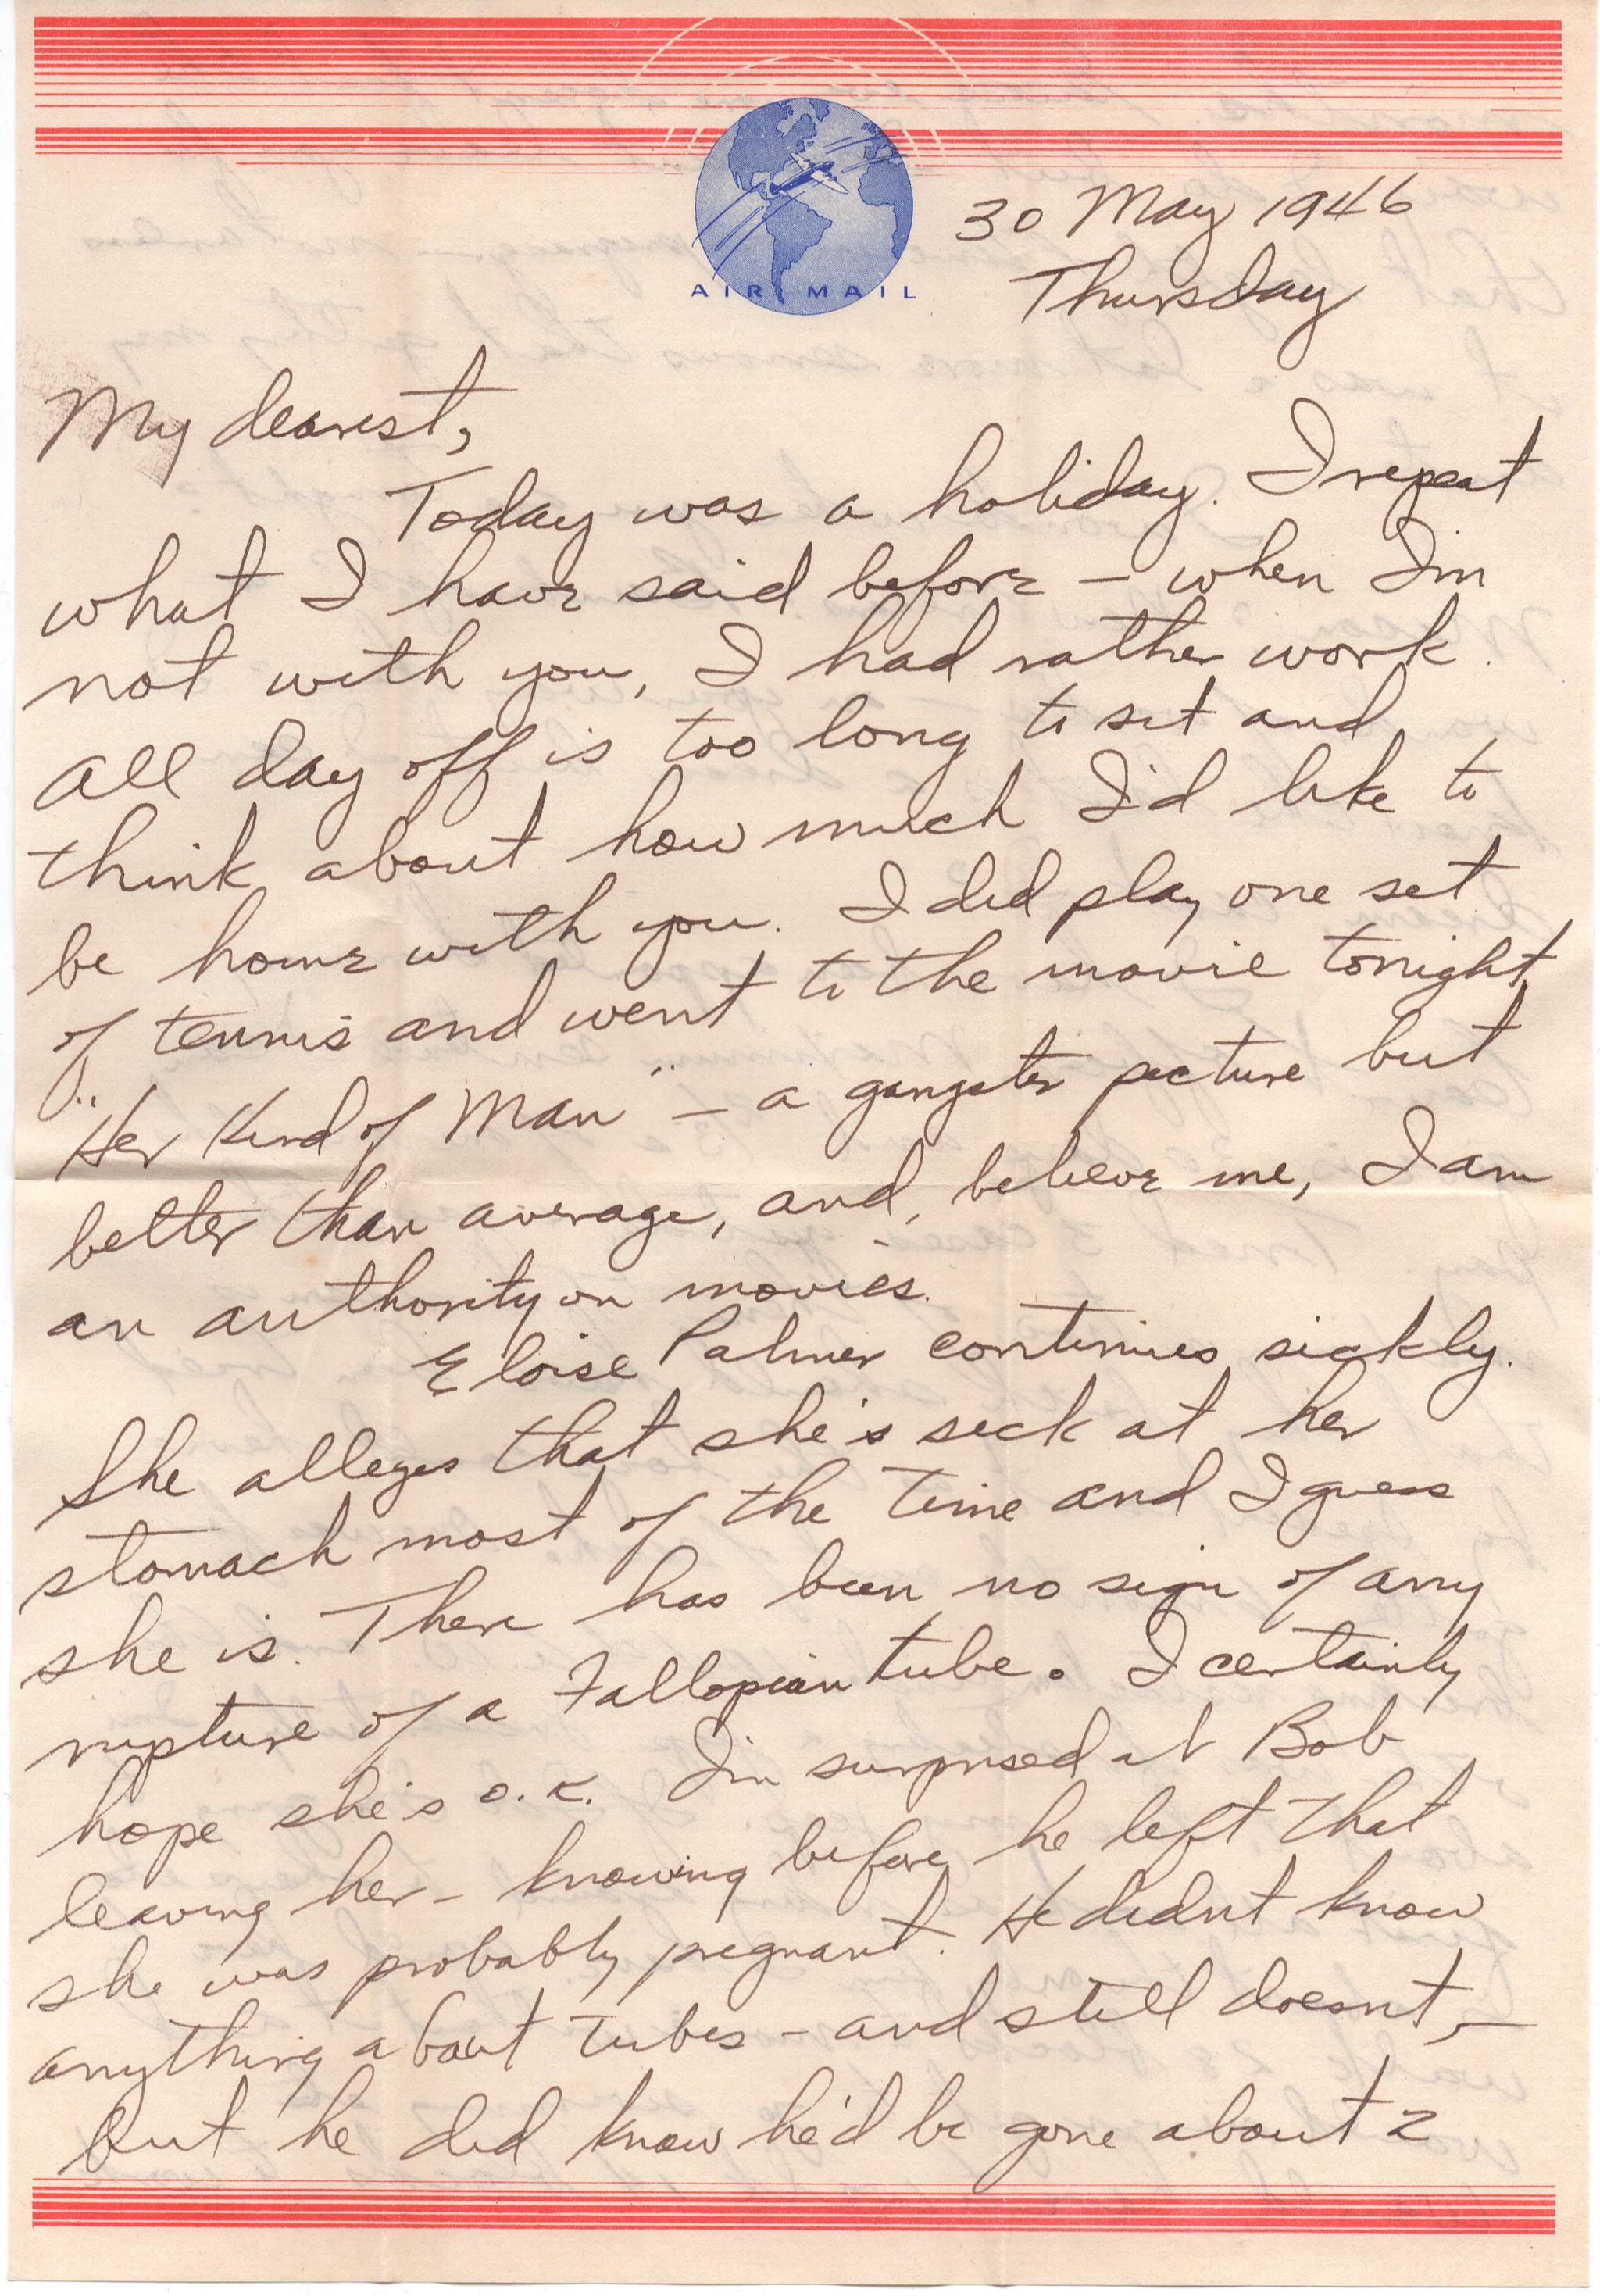 AIR MAIL
30 May 1946
Thursday
My dearest,
Today was a holiday. I repeat
what I have said before – when I'm
not with you, I had rather work.
All day off is too long to sit and
think about how much I'd like to
be home with you. I did play one set
of tennis and went to the movie tonight,
"Her Kind of Man" – a gangster picture but
better than average, and, believe me, I am
an authority on movies.
Eloise Palmer continues sickly.
She alleges that she's sick at her
stomach most of the time and I guess
she is. There has been no sign of any
rupture of a Fallopian tube. I certainly
hope she's o.k. I'm surprised at Bob
leaving her – knowing before he left that
she was probably pregnant. He didn't know
anything about tubes – and still doesn't, –
but he did know he'd be gone about 2